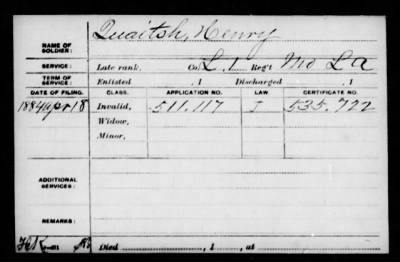 NAME OF SOLDIER: Quaitsh, Henry
SERVICE: Late rank, Co. L, 1 Reg't Mo L A
TERM OF SERVICE: Enlisted , 1 Discharged , 1
DATE OF FILING. CLASS. APPLICATION NO. LAW. CERTIFICATE NO.
1884 Apr 18 Invalid, 511.117 J 535.722
Widow,
Minor,
ADDITIONAL SERVICES:
REMARKS:
Died , 1 , at